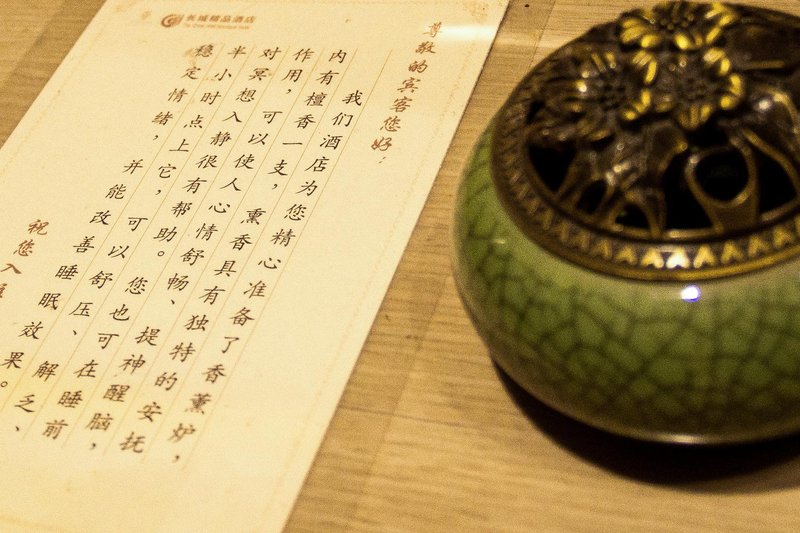 长城精品酒店
The Great Wall Boutique Hotel
尊敬的宾客您好:
我们酒店为您精心准备了香薰炉,
内有檀香一支,薰香具有独特的安抚
作用,可以使人心情舒畅、提神醒脑,
对冥想入静很有帮助。您也可在睡前
半小时点上它,可以舒压、解乏、
稳定情绪,并能改善睡眠效果。
祝您入